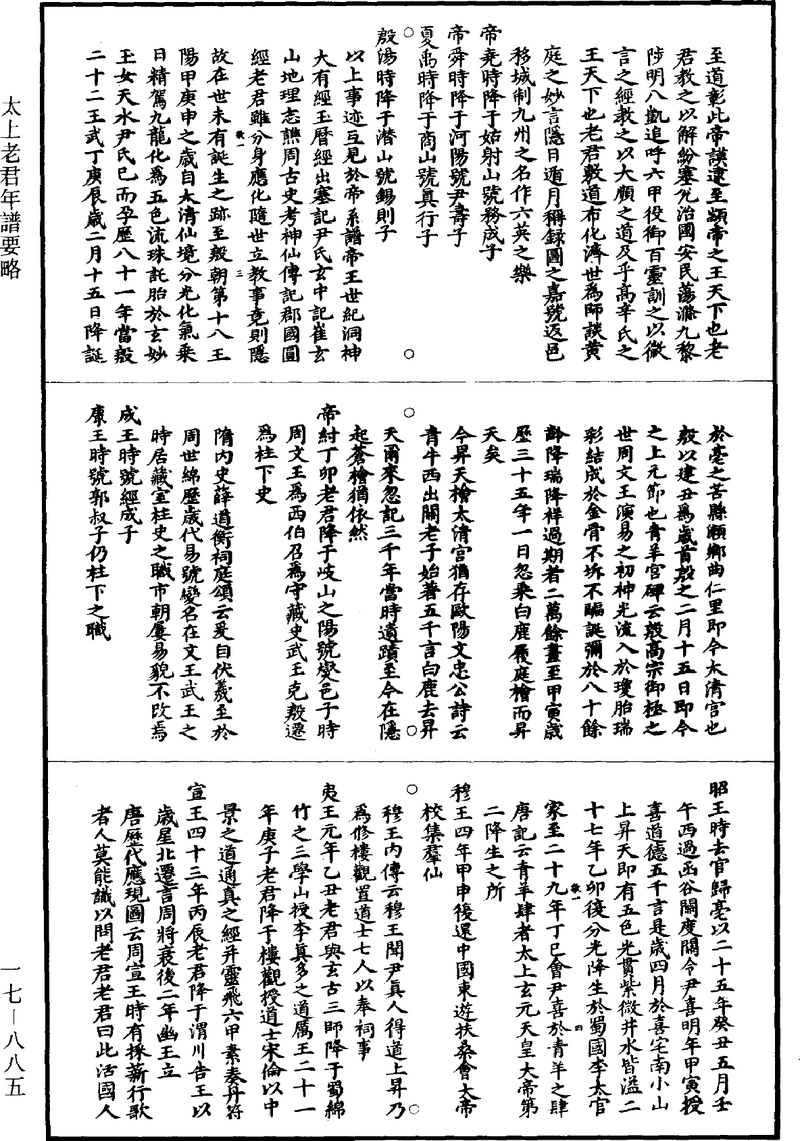 太上老君年譜要略
至道彰此帝謨逮至顓帝之王天下也老
君教之以解紛塞兌治國安民蕩滌九黎
陟明八凱追呼六甲役御百靈訓之以微
言之經教之以大順之道及乎高辛氏之
王天下也老君敷道布化濟世為師談黃
庭之妙言隱日遁月稱録圖之嘉號返邑
移城制九州之名作六英之樂
帝堯時降于姑射山號務成子
帝舜時降于河陽號尹壽子
夏禹時降于商山號真行子
殷湯時降于潛山號錫則子
以上事迹互見於帝系譜帝王世紀洞神
大有經玉曆經出塞記尹氏玄中記崔玄
山地理志譙周古史考神仙傳記郡國圓
經老君雖分身應化隨世立教事竟則隱
故在世未有誕生之跡至殷朝第十八王
陽甲庚申之歲自太清仙境分光化氣乘
日精駕九龍化為五色流珠託胎於玄妙
玉女天水尹氏已而孕歷八十一年當殷
二十二王武丁庚辰歲二月十五日降誕
於亳之苦縣瀨鄉曲仁里即今太清宫也
殷以建丑為歲首殷之二月十五日即今
之上元節也青羊宫碑云殷高宗御極之
世周文王演易之初神光流入於瓊胎瑞
彩結成於金骨不坼不騙誕彌於八十餘
齡降瑞降祥過期者二萬餘晝至甲寅歲
歷三十五年一日忽乘白鹿履庭檜而昇
天矣
今昇天檜太清宫猶存歐陽文忠公詩云
青牛西出關老子始著五千言白鹿去昇
天爾來忽記三千年當時遺蹟至今在隱
起蒼檜猶依然
帝紂丁卯老君降于岐山之陽號燮邑子時
周文王為西伯召為守藏史武王克殷遷
為柱下史
隋内史薛道衡祠庭頌云爰自伏羲至於
周世綿歷歲代易號變名在文王武王之
時居藏室柱史之職市朝屢易貌不改焉
成王時號經成子
康王時號郭叔子仍柱下之職
昭王時去官歸亳以二十五年癸丑五月壬
午西過函谷關度關令尹喜明年甲寅授
喜道德五千言是歲四月於喜宅南小山
上昇天即有五色光貫紫微井水皆溢二
十七年乙卯復分光降生於蜀國李太官
家至二十九年丁巳會尹喜於青羊之肆
唐記云青羊肆者太上玄元天皇大帝第
二降生之所
穆王四年甲申復還中國東遊扶桑會大帝
校集羣仙
穆王内傳云穆王聞尹真人得道上昇乃
為修樓觀置道士七人以奉祠事
夷王元年乙丑老君與玄古三師降于蜀綿
竹之三學山授李真多之道厲王二十一
年庚子老君降于樓觀授道士宋倫以中
景之道通真之經并靈飛六甲素奏丹符
宣王四十三年丙辰老君降于渭川告王以
歲星北遷言周將衰後二年幽王立
唐歷代應現圖云周宣王時有採薪行歌
者人莫能識以問老君老君曰此活國人
一七—八八五